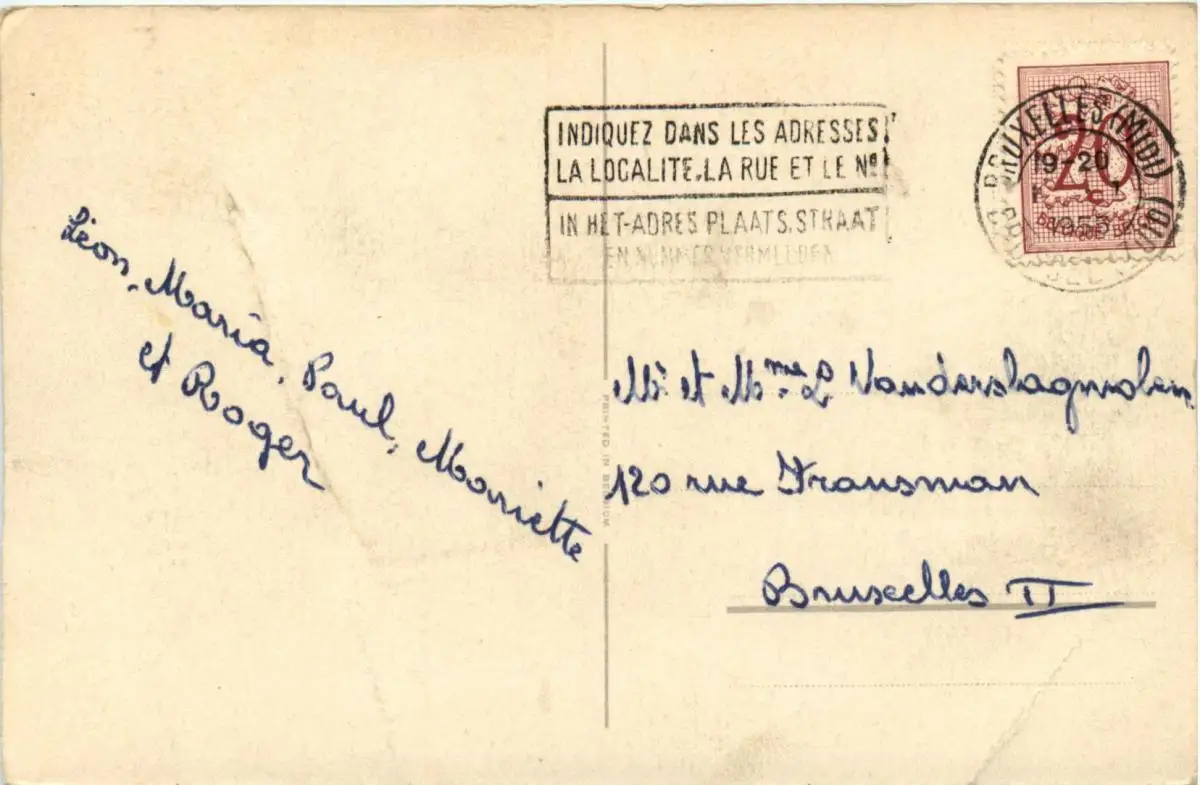 INDIQUEZ DANS LES ADRESSES
LA LOCALITE, LA RUE ET LE Nº
IN HET ADRES PLAATS, STRAAT
EN NUMMER VERMELDEN
BRUXELLES (MIDI)
19-20
1955
20
Léon, Maria, Paul, Mariette
et Roger
Mr et Mme
120 rue Fransman
Bruxelles II
PRINTED IN BELGIUM